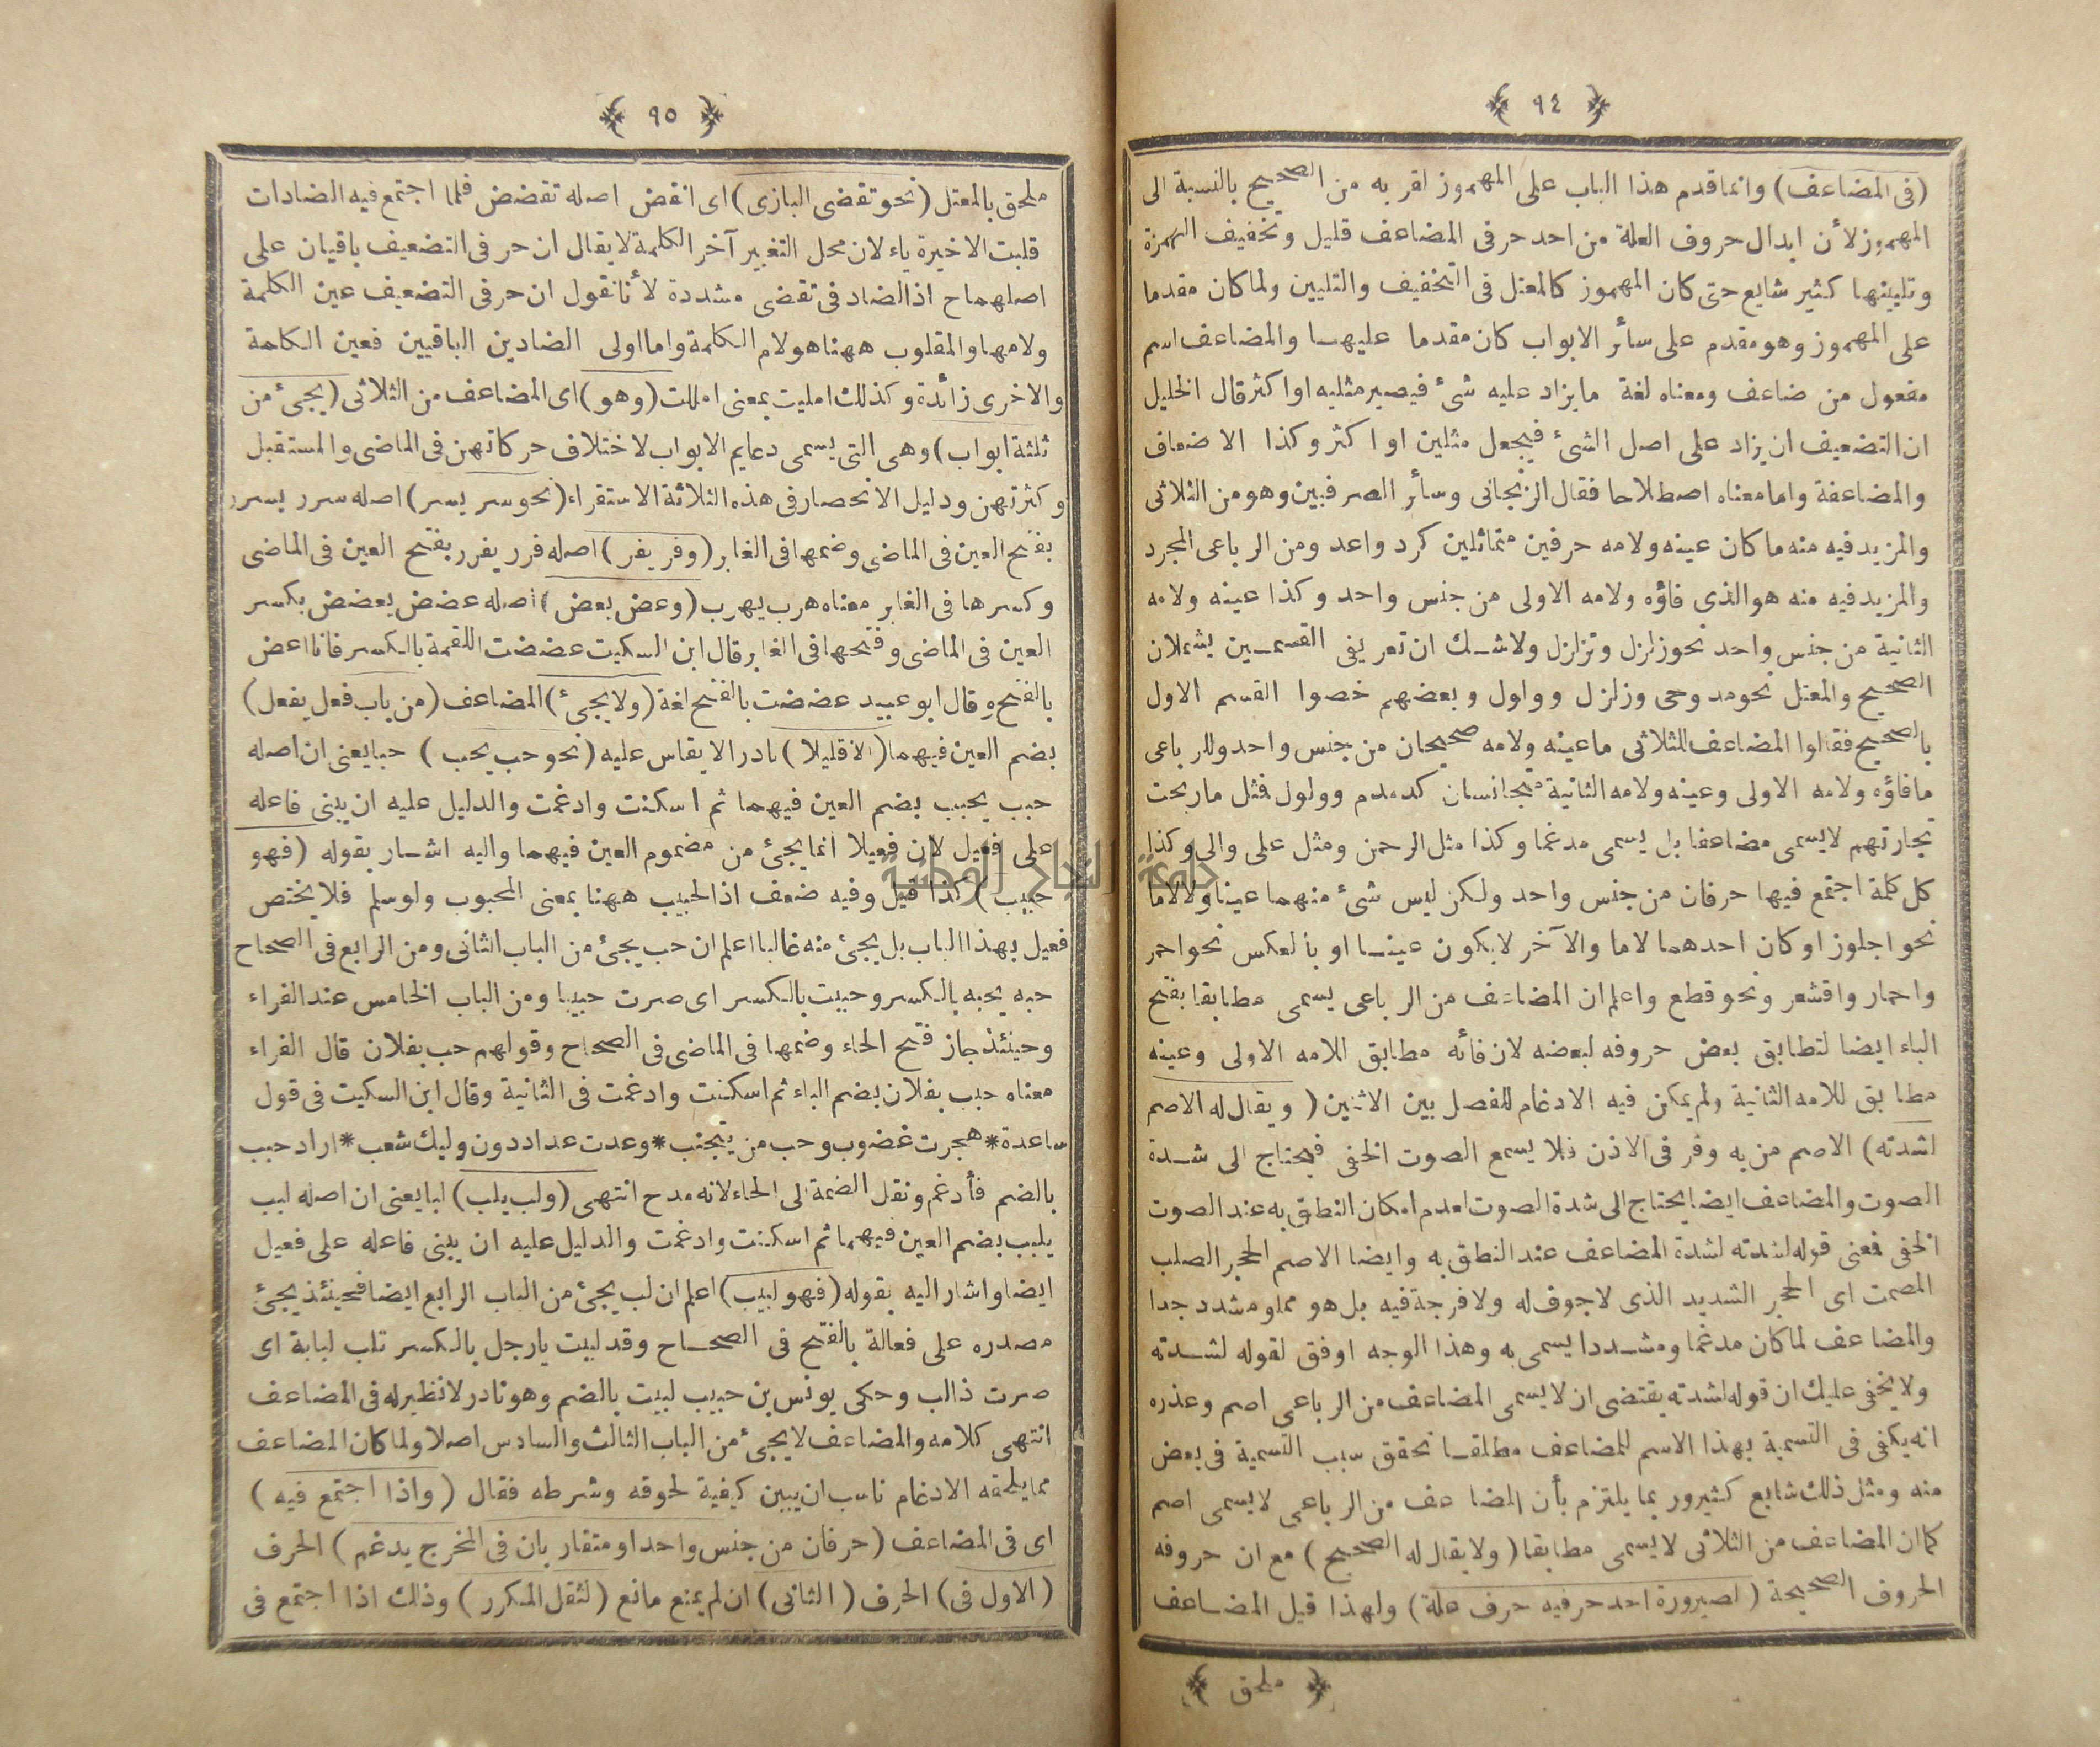 ﴿ ٩٤ ﴾
(فى المضاعف) وانما قدم هذا الباب على المهموز لقربه من الصحيح بالنسبة الى
المهموز لأن ابدال حروف العلة من احد حرفى المضاعف قليل وتخفيف الهمزة
وتليينها كثير شايع حتى كان المهموز كالمعتل فى التخفيف والتليين ولما كان مقدما
على المهموز وهو مقدم على سائر الابواب كان مقدما عليهما والمضاعف اسم
مفعول من ضاعف ومعناه لغة مايزاد عليه شئ فيصير مثليه او اكثر قال الخليل
ان التضعيف ان يزاد على اصل الشئ فيجعل مثلين او اكثر وكذا الاضعاف
والمضاعفة واما معناه اصطلاحا فقال الزنجانى وسائر الصرفيين وهو من الثلاثى
والمزيد فيه منه ماكان عينه ولامه حرفين متماثلين كرد واعد ومن الرباعى المجرد
والمزيد فيه منه هو الذى فاؤه ولامه الاولى من جنس واحد وكذا عينه ولامه
الثانية من جنس واحد نحو زلزل وتزلزل ولا شك ان تعريفى القسمين يشملان
الصحيح والمعتل نحو مد وحى وزلزل وولول وبعضهم خصوا القسم الاول
بالصحيح فقالوا المضاعف للثلاثى ماعينه ولامه صحيحان من جنس واحد وللرباعى
مافاؤه ولامه الاولى وعينه ولامه الثانية متجانسان كدمدم وولول فمثل ماربحت
تجارتهم لايسمى مضاعفا بل يسمى مدغما وكذا مثل الرحمن ومثل على والى وكذا
كل كلمة اجتمع فيها حرفان من جنس واحد ولكن ليس شئ منهما عينا ولا لاما
نحو اجلوز او كان احدهما لاما والآخر لايكون عينا او بالعكس نحو احمر
واحمار واقشعر ونحو قطع واعلم ان المضاعف من الرباعى يسمى مطابقا بفتح
الباء ايضا لتطابق بعض حروفه لبعضه لان فائه مطابق للامه الاولى وعينه
مطابق للامه الثانية ولم يمكن فيه الادغام للفصل بين الاثنين (ويقال له الاصم
لشدته) الاصم من به وقر فى الاذن فلا يسمع الصوت الخفى فيحتاج الى شدة
الصوت والمضاعف ايضا يحتاج الى شدة الصوت لعدم امكان النطق به عند الصوت
الخفى فمعنى قوله لشدته لشدة المضاعف عند النطق به وايضا الاصم الحجر الصلب
المصمت اى الحجر الشديد الذى لاجوف له ولا فرجة فيه بل هو مملو مشدد جدا
والمضاعف لما كان مدغما ومشددا يسمى به وهذا الوجه اوفق لقوله لشدته
ولا يخفى عليك ان قوله لشدته يقتضى ان لايسمى المضاعف من الرباعى اصم وعذره
انه يكفى فى التسمية بهذا الاسم للمضاعف مطلقا تحقق سبب التسمية فى بعض
منه ومثل ذلك شايع كثير وربما يلتزم بأن المضاعف من الرباعى لايسمى اصم
كما ان المضاعف من الثلاثى لايسمى مطابقا (ولا يقال له الصحيح) مع ان حروفه
الحروف الصحيحة (لصيرورة احد حرفيه حرف علة) ولهذا قيل المضاعف
﴿ ملحق ﴾
﴿ ٩٥ ﴾
ملحق بالمعتل (نحو تقضى البازى) اى انقض اصله تقضض فلما اجتمع فيه الضادات
قلبت الاخيرة ياء لان محل التغيير آخر الكلمة لايقال ان حرفى التضعيف باقيان على
اصلهما ح اذ الضاد فى تقضى مشددة لأنا نقول ان حرفى التضعيف عين الكلمة
ولامها والمقلوب ههنا هو لام الكلمة واما اولى الضادين الباقيين فعين الكلمة
والاخرى زائدة وكذلك امليت بمعنى امللت (وهو) اى المضاعف من الثلاثى (يجئ من
ثلثة ابواب) وهى التى يسمى دعايم الابواب لاختلاف حركاتهن فى الماضى والمستقبل
وكثرتهن ودليل الانحصار فى هذه الثلاثة الاستقراء (نحو سر يسر) اصله سرر يسرر
بفتح العين فى الماضى وضمها فى الغابر (وفر يفر) اصله فرر يفرر بفتح العين فى الماضى
وكسرها فى الغابر معناه هرب يهرب (وعض يعض) اصله عضض يعضض بكسر
العين فى الماضى وفتحها فى الغابر قال ابن السكيت عضضت اللقمة بالكسر فانا اعض
بالفتح وقال ابو عبيد عضضت بالفتح لغة (ولا يجئ) المضاعف (من باب فعل يفعل)
بضم العين فيهما (الا قليلا) نادرا لايقاس عليه (نحو حب يحب) حبا يعنى ان اصله
حبب يحبب بضم العين فيهما ثم اسكنت وادغمت والدليل عليه ان يبنى فاعله
على فعيل لان فعيلا انما يجئ من مضموم العين فيهما واليه اشار بقوله (فهو
حبيب) كذا قيل وفيه ضعف اذ الحبيب ههنا بمعنى المحبوب ولو سلم فلا يختص
فعيل بهذا الباب بل يجئ منه غالبا اعلم ان حب يجئ من الباب الثانى ومن الرابع فى الصحاح
حبه يحبه بالكسر وحببت بالكسر اى صرت حبيبا ومن الباب الخامس عند الفراء
وحينئذ جاز فتح الحاء وضمها فى الماضى فى الصحاح وقولهم حب بفلان قال الفراء
معناه حبب بفلان بضم الباء ثم اسكنت وادغمت فى الثانية وقال ابن السكيت فى قول
ساعدة * هجرت غضوب وحب من يتجنب * وعدت عداد دون وليك شعب * اراد حبب
بالضم فأدغم ونقل الضمة الى الحاء لانه مدح انتهى (ولب يلب) لبا يعنى ان اصله لبب
يلبب بضم العين فيهما ثم اسكنت وادغمت والدليل عليه ان يبنى فاعله على فعيل
ايضا واشار اليه بقوله (فهو لبيب) اعلم ان لب يجئ من الباب الرابع ايضا فحينئذ يجئ
مصدره على فعالة بالفتح فى الصحاح وقد لببت يارجل بالكسر تلب لبابة اى
صرت ذا لب وحكى يونس بن حبيب لببت بالضم وهو نادر لانظير له فى المضاعف
انتهى كلامه والمضاعف لايجئ من الباب الثالث والسادس اصلا ولما كان المضاعف
مما يلحقه الادغام ناسب ان يبين كيفية لحوقه وشرطه فقال (واذا اجتمع فيه)
اى فى المضاعف (حرفان من جنس واحد او متقاربان فى المخرج يدغم) الحرف
(الاول فى) الحرف (الثانى) ان لم يمنع مانع (لثقل المكرر) وذلك اذا اجتمع فى
جامعة النجاح الوطنية